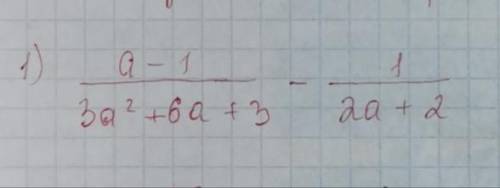 1) \frac{a - 1}{3a² + 6a + 3} - \frac{1}{2a + 2}